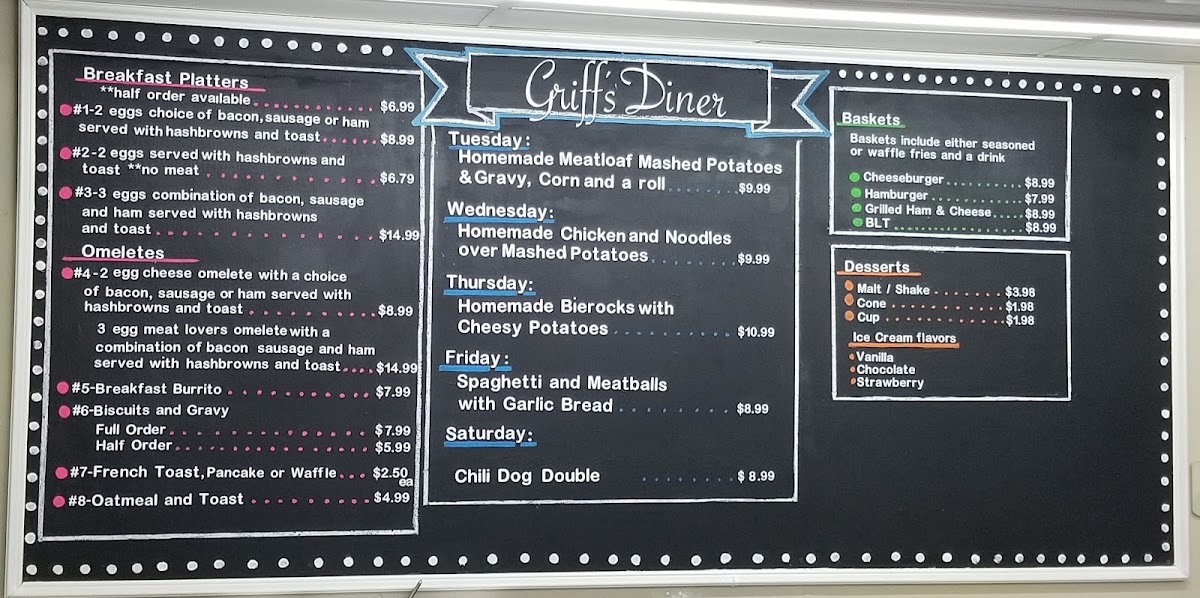 Griff's Diner
Breakfast Platters
**half order available.......... $6.99
#1-2 eggs choice of bacon, sausage or ham
served with hashbrowns and toast...... $8.99
#2-2 eggs served with hashbrowns and
toast **no meat................ $6.79
#3-3 eggs combination of bacon, sausage
and ham served with hashbrowns
and toast.................... $14.99
Omeletes
#4-2 egg cheese omelete with a choice
of bacon, sausage or ham served with
hashbrowns and toast............ $8.99
3 egg meat lovers omelete with a
combination of bacon sausage and ham
served with hashbrowns and toast.... $14.99
#5-Breakfast Burrito............ $7.99
#6-Biscuits and Gravy
Full Order.................. $7.99
Half Order.................. $5.99
#7-French Toast, Pancake or Waffle... $2.50
ea
#8-Oatmeal and Toast.......... $4.99
Tuesday:
Homemade Meatloaf Mashed Potatoes
& Gravy, Corn and a roll........ $9.99
Wednesday:
Homemade Chicken and Noodles
over Mashed Potatoes......... $9.99
Thursday:
Homemade Bierocks with
Cheesy Potatoes............ $10.99
Friday:
Spaghetti and Meatballs
with Garlic Bread........... $8.99
Saturday:
Chili Dog Double ......... $8.99
Baskets
Baskets include either seasoned
or waffle fries and a drink
Cheeseburger.......... $8.99
Hamburger............ $7.99
Grilled Ham & Cheese.... $8.99
BLT................ $8.99
Desserts
Malt / Shake......... $3.98
Cone............. $1.98
Cup.............. $1.98
Ice Cream flavors
Vanilla
Chocolate
Strawberry